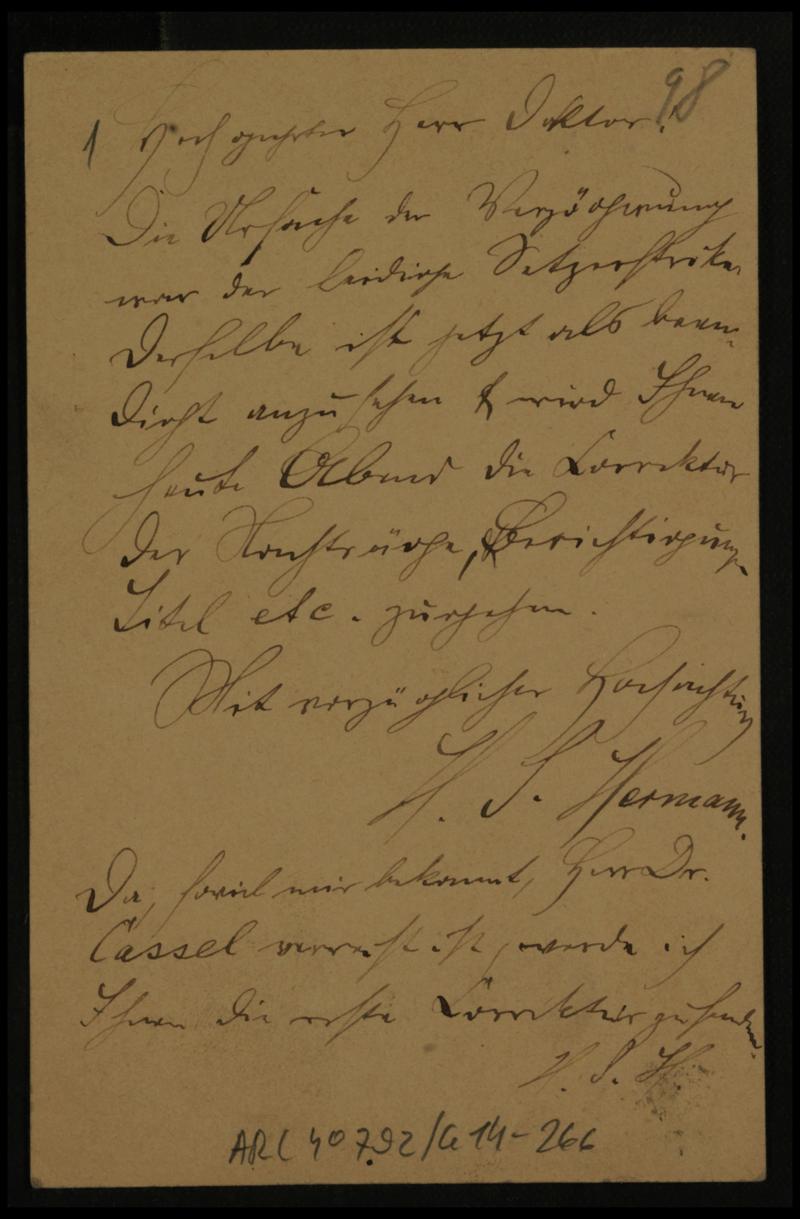 98
1 Hochgeehrter Herr Doktor!
Die Ursache der Verzögerung
war der leidige Setzerstrike.
Derselbe ist jetzt als been-
digt anzusehen & wird Ihnen
heute Abend die Correktur
der Nachträge, Berichtigung,
Titel etc. zugehen.
Mit vorzüglicher Hochachtung
H. S. Hermann.
Da, soviel mir bekannt, Herr Dr.
Cassel verreist ist, werde ich
Ihnen die erste Correktur zusenden.
H. S. H.
ARC 40792/G 14-266